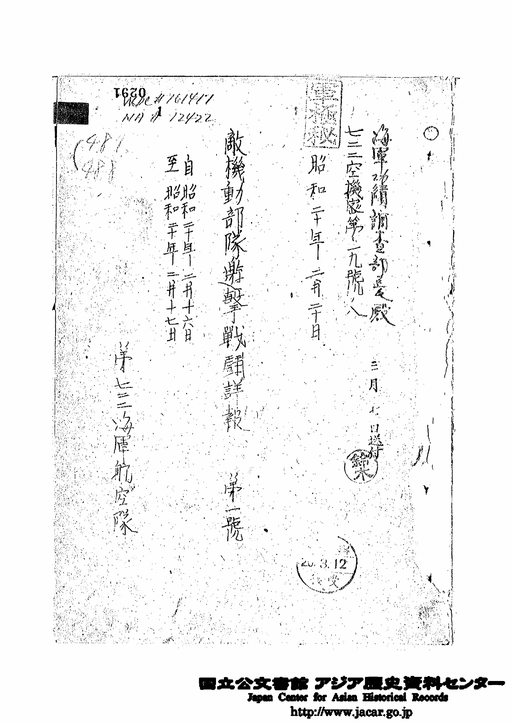 海軍功績調査部長殿
七二二空機密第一九號ノ八
三月七日送付
鈴木
軍極秘
昭和二十年二月二十日
敵機動部隊邀擊戰鬪詳報 第一號
自 昭和二十年二月十六日
至 昭和二十年二月十七日
第七二二海軍航空隊
0291
WDC # 161417
NA # 12422
487
488
20.3.12
国立公文書館 アジア歴史資料センター
Japan Center for Asian Historical Records
http://www.jacar.go.jp